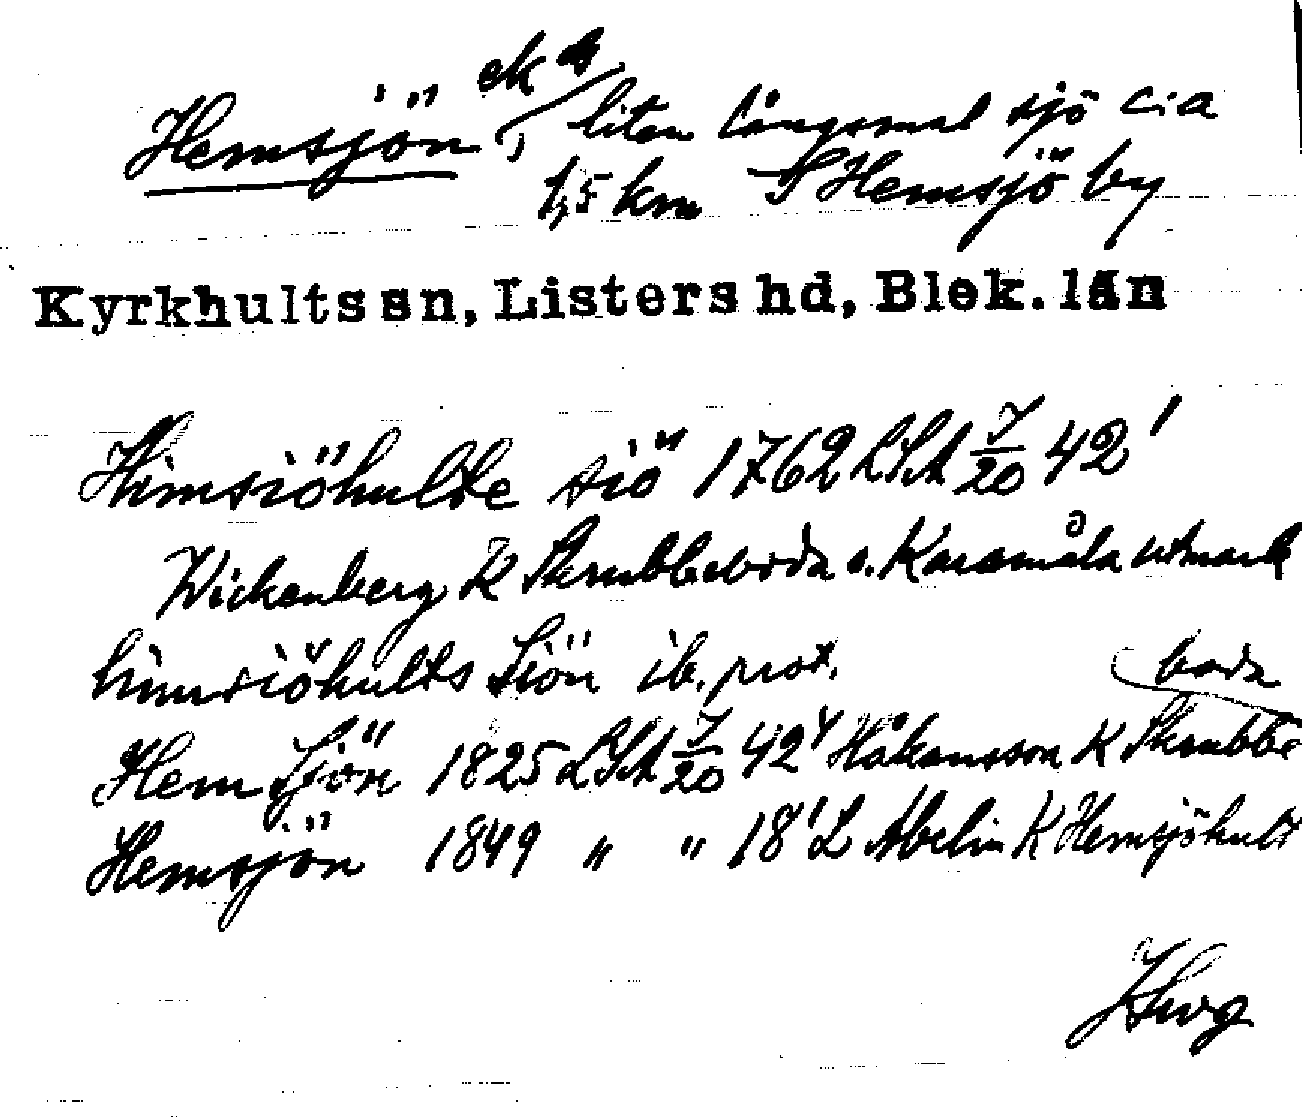 ek
Hemsjön, liten långsmal sjö c:a
1,5 km S Hemsjö by
Kyrkhults sn, Listers hd, Blek. län
Himsiöhulte siö 1762 LSA 7/20 42'
Wickenberg K Skrubbeboda o. Karamåla utmark
himsiöhults Siön ib. prot.
boda
Hem Sjön 1825 LSA 7/20 42' Håkansson K Skrubbe
Hemsjön 1849 " " 18' L Abelin K Hemsjöhult